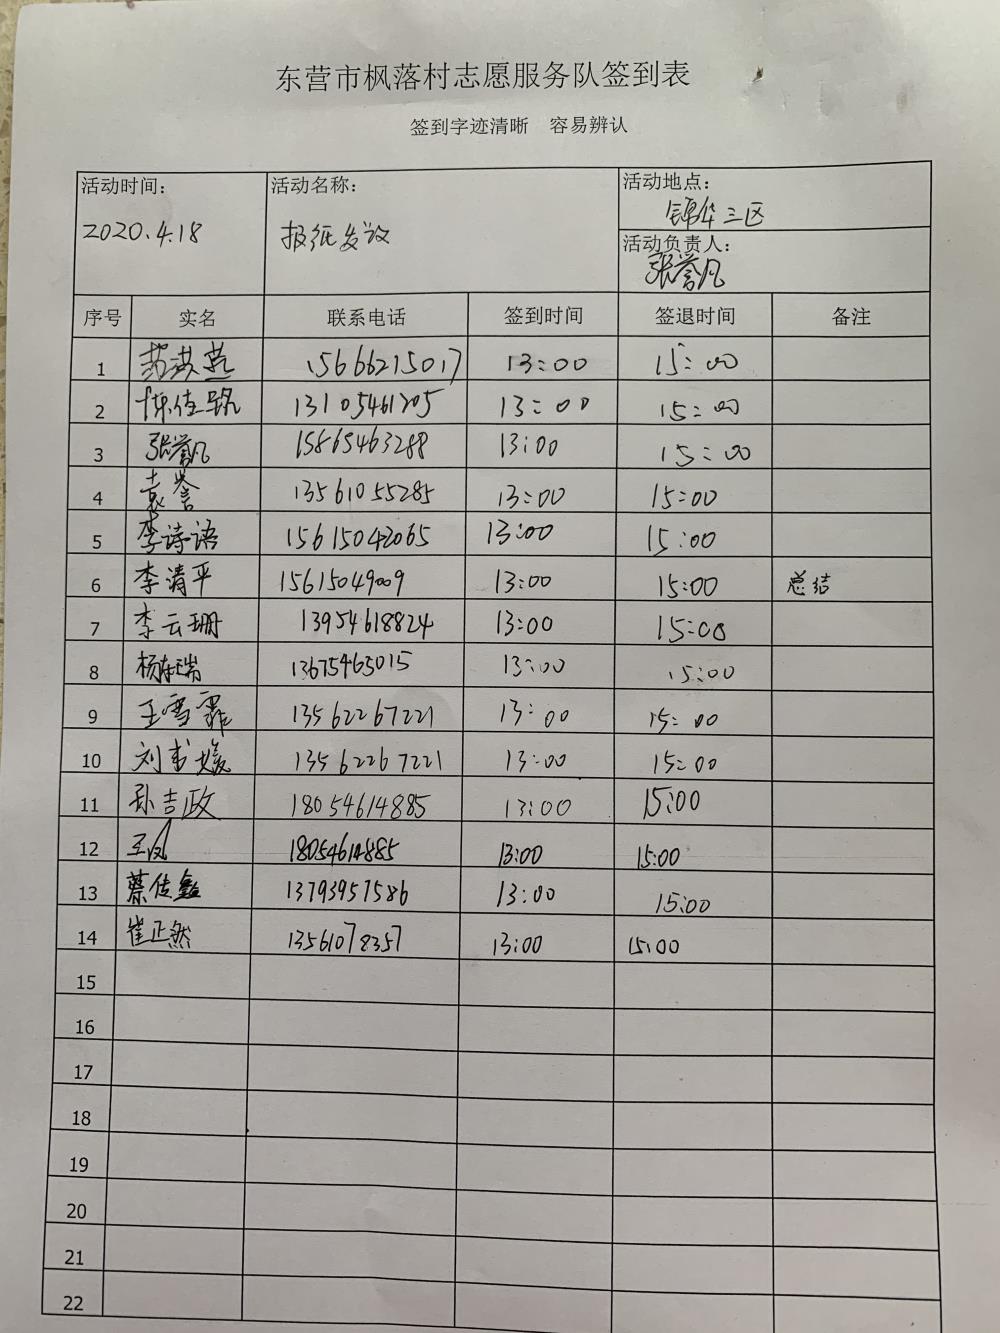 东营市枫落村志愿服务队签到表
签到字迹清晰 容易辨认
活动时间: 活动名称: 活动地点:
2020.4.18 报纸发放 锦华三区
活动负责人:
张誉凡
序号 实名 联系电话 签到时间 签退时间 备注
1 15666215017 13:00 15:00
2 陈佳璐 13105461205 13:00 15:00
3 张誉凡 15865463288 13:00 15:00
4 袁誉 13561055285 13:00 15:00
5 李诗语 15615042065 13:00 15:00
6 李清平 15615049009 13:00 15:00 总结
7 李云珊 13954618824 13:00 15:00
8 13675463015 13:00 15:00
9 王雪霏 13562267221 13:00 15:00
10 刘书媛 13562267221 13:00 15:00
11 孙吉政 18054614885 13:00 15:00
12 王凤 18054614885 13:00 15:00
13 蔡佳鑫 13793957586 13:00 15:00
14 崔正然 13561078357 13:00 15:00
15
16
17
18
19
20
21
22